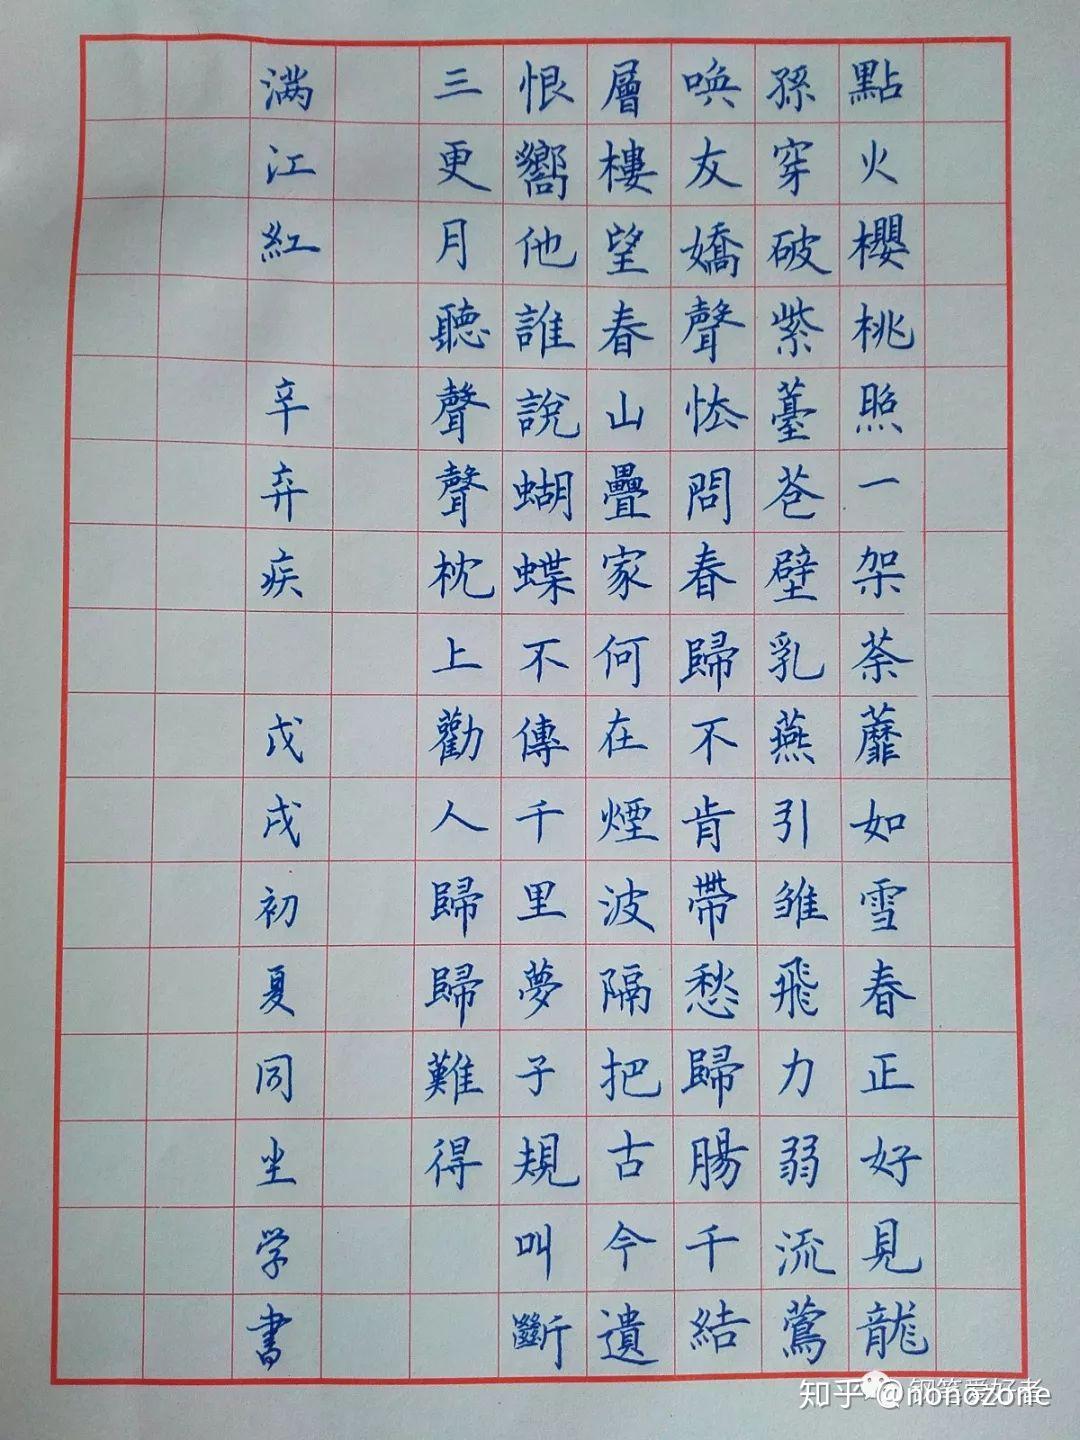 點火櫻桃照一架荼蘼如雪春正好見龍
孫穿破紫薹苍壁乳燕引雏飛力弱流鶯
唤友嬌聲怯問春歸不肯帶愁歸腸千結
層樓望春山疊家何在煙波隔把古今遺
恨嚮他誰說蝴蝶不傳千里夢子規叫斷
三更月聽聲聲枕上勸人歸歸難得
满江紅 辛弃疾 戊戌初夏同坐学書
知乎 @nonozone
钢笔爱好者